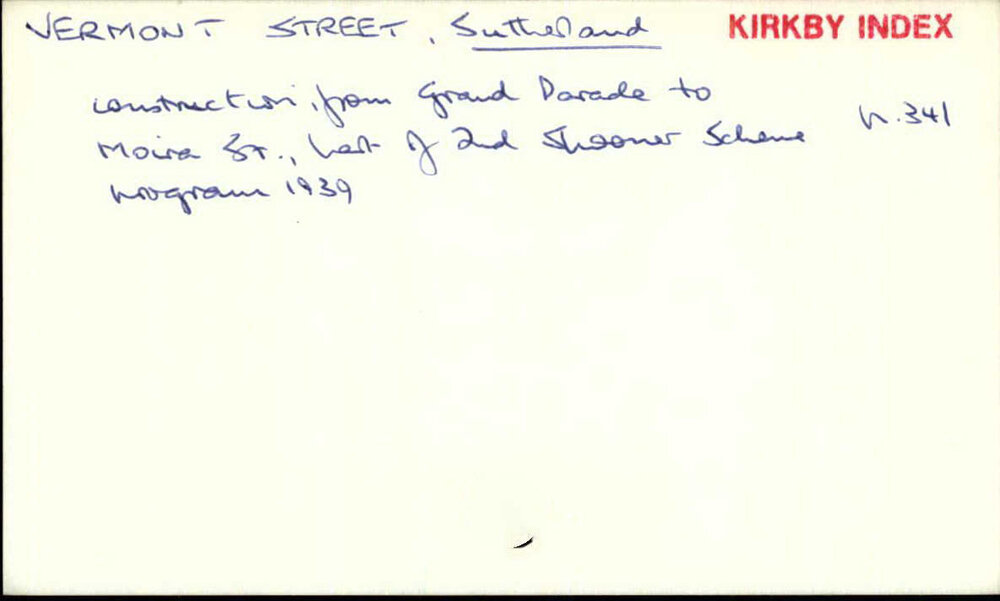 VERMONT STREET, Sutherland KIRKBY INDEX
construction, from Grand Parade to
Moira St., part of 2nd Spooner Scheme p.341
program 1939